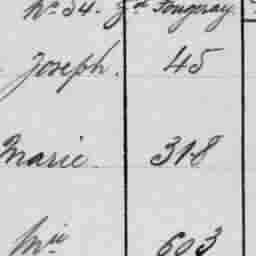 No 54. Gd Fougeray.
Joseph. 45
Marie 318
Mie 603